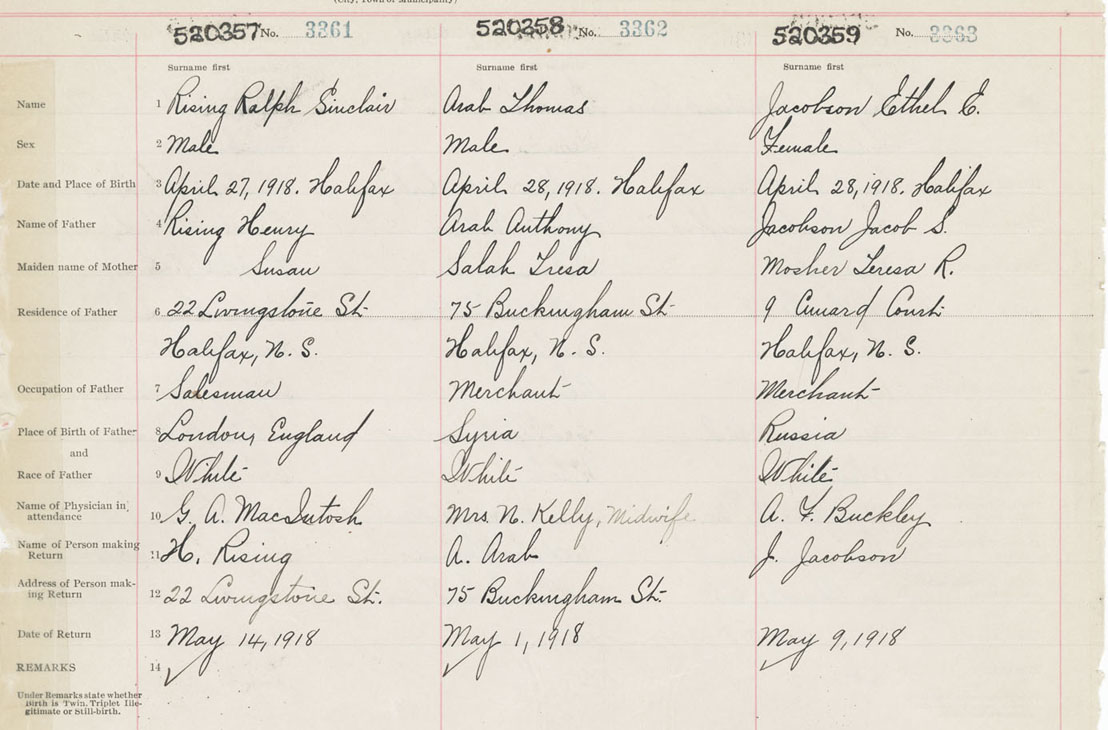 (City, Town or Municipality)
520357 No. 3361 520358 No. 3362 520359 No. 3363
Surname first Surname first Surname first
Name 1 Rising Ralph Sinclair Arab Thomas Jacobson Ethel E.
Sex 2 Male Male Female
Date and Place of Birth 3 April 27, 1918. Halifax April 28, 1918. Halifax April 28, 1918. Halifax
Name of Father 4 Rising Henry Arab Anthony Jacobson Jacob S.
Maiden name of Mother 5 Susan Salah Tresa Mosher Teresa R.
Residence of Father 6 22 Livingstone St. 75 Buckingham St. 9 Cunard Court
Halifax, N. S. Halifax, N. S. Halifax, N. S.
Occupation of Father 7 Salesman Merchant Merchant
Place of Birth of Father 8 London, England Syria Russia
and
Race of Father 9 White White White
Name of Physician in attendance 10 G. A. MacIntosh Mrs. N. Kelly, Midwife A. F. Buckley
Name of Person making Return 11 H. Rising A. Arab J. Jacobson
Address of Person making Return 12 22 Livingstone St. 75 Buckingham St.
Date of Return 13 May 14, 1918 May 1, 1918 May 9, 1918
REMARKS 14 ✓ ✓ ✓
Under Remarks state whether
Birth is Twin, Triplet Ille-
gitimate or Still-birth.